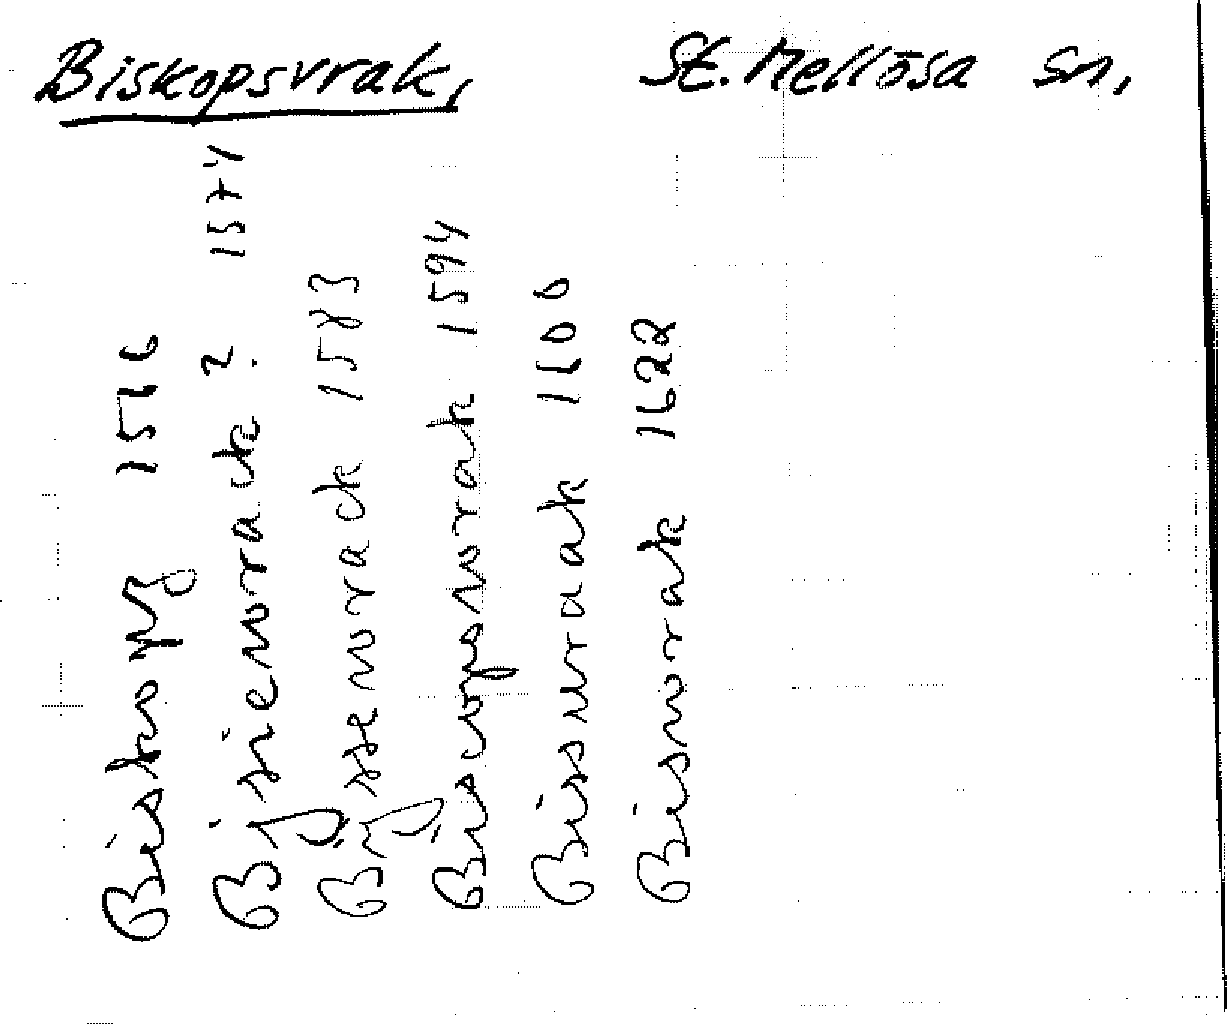 Biskopsvrak, St. Mellösa sn,
Biskopz 1546
Bijsienorack ? 1574
Bijssenorack 1583
Biscopsworak 1594
Bissuraak 1600
Biesworak 1622